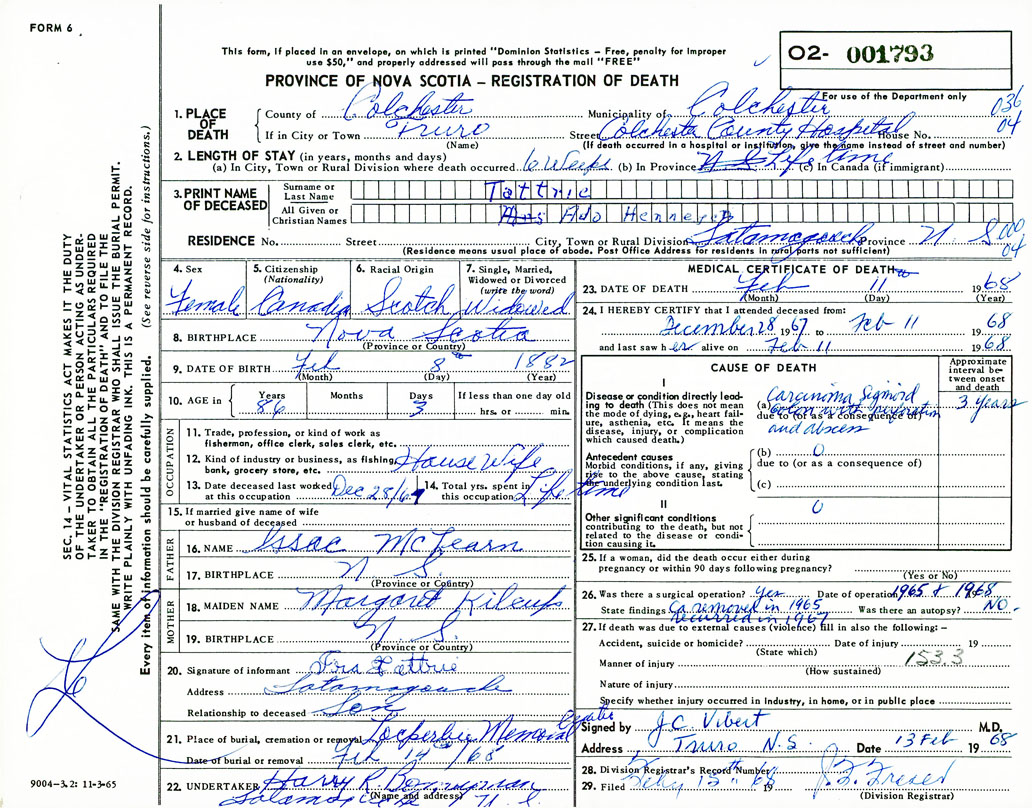 FORM 6
This form, if placed in an envelope, on which is printed "Dominion Statistics – Free, penalty for improper
use $50," and properly addressed will pass through the mail "FREE"
O2- 001793
PROVINCE OF NOVA SCOTIA – REGISTRATION OF DEATH
For use of the Department only
036
04
1. PLACE OF DEATH
County of Colchester
Municipality of Colchester
If in City or Town Truro
(Name)
Street Colchester County Hospital House No.
(If death occurred in a hospital or institution, give the name instead of street and number)
2. LENGTH OF STAY (in years, months and days)
(a) In City, Town or Rural Division where death occurred 6 Weeks (b) In Province N S Life time (c) In Canada (if immigrant)
3. PRINT NAME OF DECEASED
Surname or Last Name Tattrie
All Given or Christian Names Mrs Ada
RESIDENCE No. Street City, Town or Rural Division Tatamagouche Province N. S 00
04
(Residence means usual place of abode. Post Office Address for residents in rural parts not sufficient)
4. Sex
Female
5. Citizenship (Nationality)
Canadian
6. Racial Origin
Scotch
7. Single, Married, Widowed or Divorced (write the word)
Widowed
8. BIRTHPLACE Nova Scotia
(Province or Country)
9. DATE OF BIRTH Feb 8 1882
(Month) (Day) (Year)
10. AGE in
Years 86
Months
Days 3
If less than one day old
hrs. or min.
OCCUPATION
11. Trade, profession, or kind of work as
fisherman, office clerk, sales clerk, etc.
12. Kind of industry or business, as fishing, House Wife
bank, grocery store, etc.
13. Date deceased last worked at this occupation Dec 28/67
14. Total yrs. spent in this occupation Life time
15. If married give name of wife
or husband of deceased
FATHER
16. NAME Issac McLearn
17. BIRTHPLACE N S.
(Province or Country)
MOTHER
18. MAIDEN NAME Margaret
19. BIRTHPLACE N S.
(Province or Country)
20. Signature of informant Tattrie
Address Tatamagouche
Relationship to deceased Son
21. Place of burial, cremation or removal Memorial
Date of burial or removal Feb 14 /68
22. UNDERTAKER Harry R.
Tatamagouche N. S.
(Name and address)
MEDICAL CERTIFICATE OF DEATH
23. DATE OF DEATH Feb 11 1968
(Month) (Day) (Year)
24. I HEREBY CERTIFY that I attended deceased from:
December 28 1967 to Feb 11 1968
and last saw her alive on Feb 11 1968.
CAUSE OF DEATH
Approximate interval between onset and death
I
Disease or condition directly leading to death (This does not mean the mode of dying, e.g., heart failure, asthenia, etc. It means the disease, injury, or complication which caused death.)
(a) Carcinoma Sigmoid
Colon with perforation
due to (or as a consequence of)
and abscess
3 years
Antecedent causes
Morbid conditions, if any, giving rise to the above cause, stating the underlying condition last.
(b) 0
due to (or as a consequence of)
(c)
II
Other significant conditions
contributing to the death, but not related to the disease or condition causing it.
0
25. If a woman, did the death occur either during
pregnancy or within 90 days following pregnancy?
(Yes or No)
26. Was there a surgical operation? Yes Date of operation 1965 & 1968
State findings Ca removed in 1965 Was there an autopsy? NO.
recurred in 1967
27. If death was due to external causes (violence) fill in also the following: –
Accident, suicide or homicide? Date of injury 19
(State which)
153.3
Manner of injury
(How sustained)
Nature of injury
Specify whether injury occurred in industry, in home, or in public place
Signed by J.C. Vibert M.D.
Address Truro N.S. Date 13 Feb 1968
28. Division Registrar's Record Number
29. Filed 19
(Division Registrar)
SEC. 14 – VITAL STATISTICS ACT MAKES IT THE DUTY
OF THE UNDERTAKER OR PERSON ACTING AS UNDER-
TAKER TO OBTAIN ALL THE PARTICULARS REQUIRED
IN THE "REGISTRATION OF DEATH" AND TO FILE THE
SAME WITH THE DIVISION REGISTRAR WHO SHALL ISSUE THE BURIAL PERMIT.
WRITE PLAINLY WITH UNFADING INK. THIS IS A PERMANENT RECORD.
Every item of information should be carefully supplied. (See reverse side for instructions.)
9004–3.2: 11-3-65